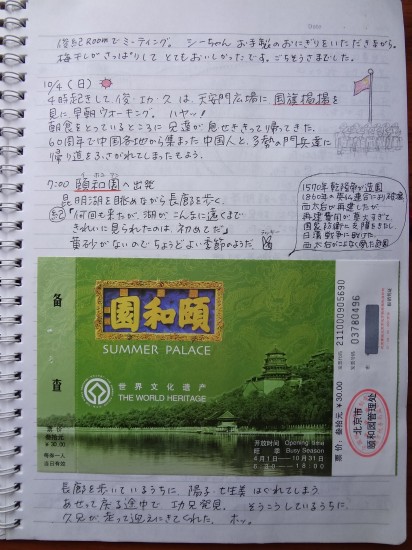 Date
俊紀roomでミーティング。シーちゃん お手製のおにぎりをいただきながら。
梅干しがさっぱりして とてもおいしかったです。ごちそうさまでした。
10/4(日)
4時起きして 俊・功・久は、天安門広場に 国旗掲揚を
見に 早朝ウオーキング。ハヤッ!
朝食をとっているところに 兄達が息せききって帰ってきた。
60周年で中国各地から集まった中国人と、多勢の門兵達に
帰り道をふさがれてしまったもよう。
7:00 頤和園へ出発
昆明湖を眺めながら長廊を歩く。
紀「何回も来たが、湖がこんなに遠くまで
きれいに見られたのは、初めてだ」
黄砂がないのでちょうどよい季節のようだ
ラッキー
1860年の英仏連合に
西太后が再建したが、
再建費用が莫大すぎて
日清戦争に敗けた。
备查
頤和園
SUMMER PALACE
世界文化遗产
THE WORLD HERITAGE
票价
叁拾元
¥30.00
每券一人
当日有效
开放时间 Opening time
旺季 Busy Season
4月1日-10月31日
6:30-18:00
211000905690
03780496
票价:叁拾元 ¥30.00
北京市
颐和园管理处
長廊を歩いているうちに、陽子・七生美 はぐれてしまう
あせって 戻る途中で 功兄発見。そうこうしているうちに、
久兄が走って迎えにきてくれた。ホッ。